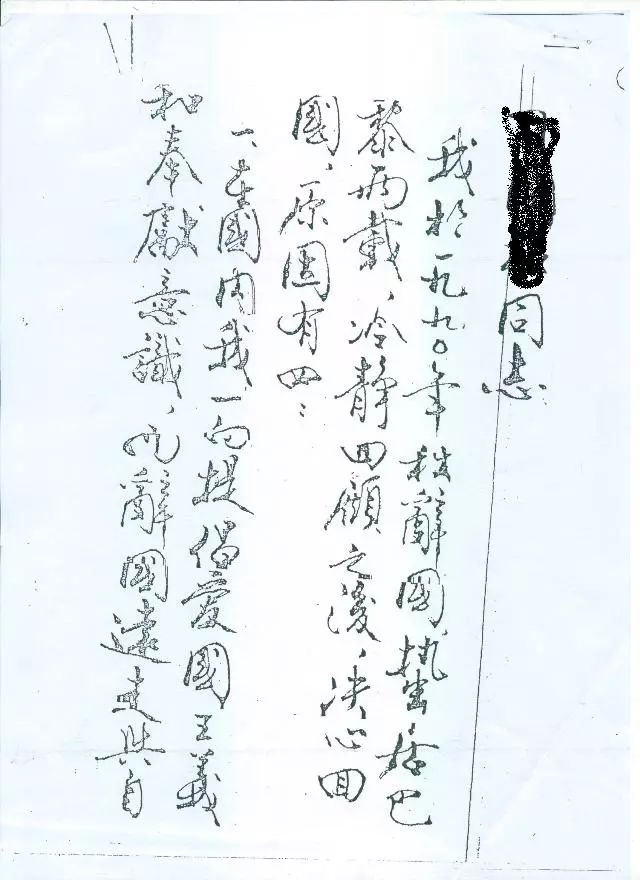 同志
我於一九九〇年秋辭國，蟄居巴
黎兩載，冷靜回顧之後，決心回
國，原因有四：
一、在國内我一向提倡愛國主義
和奉獻意識，而辭國遠走與自